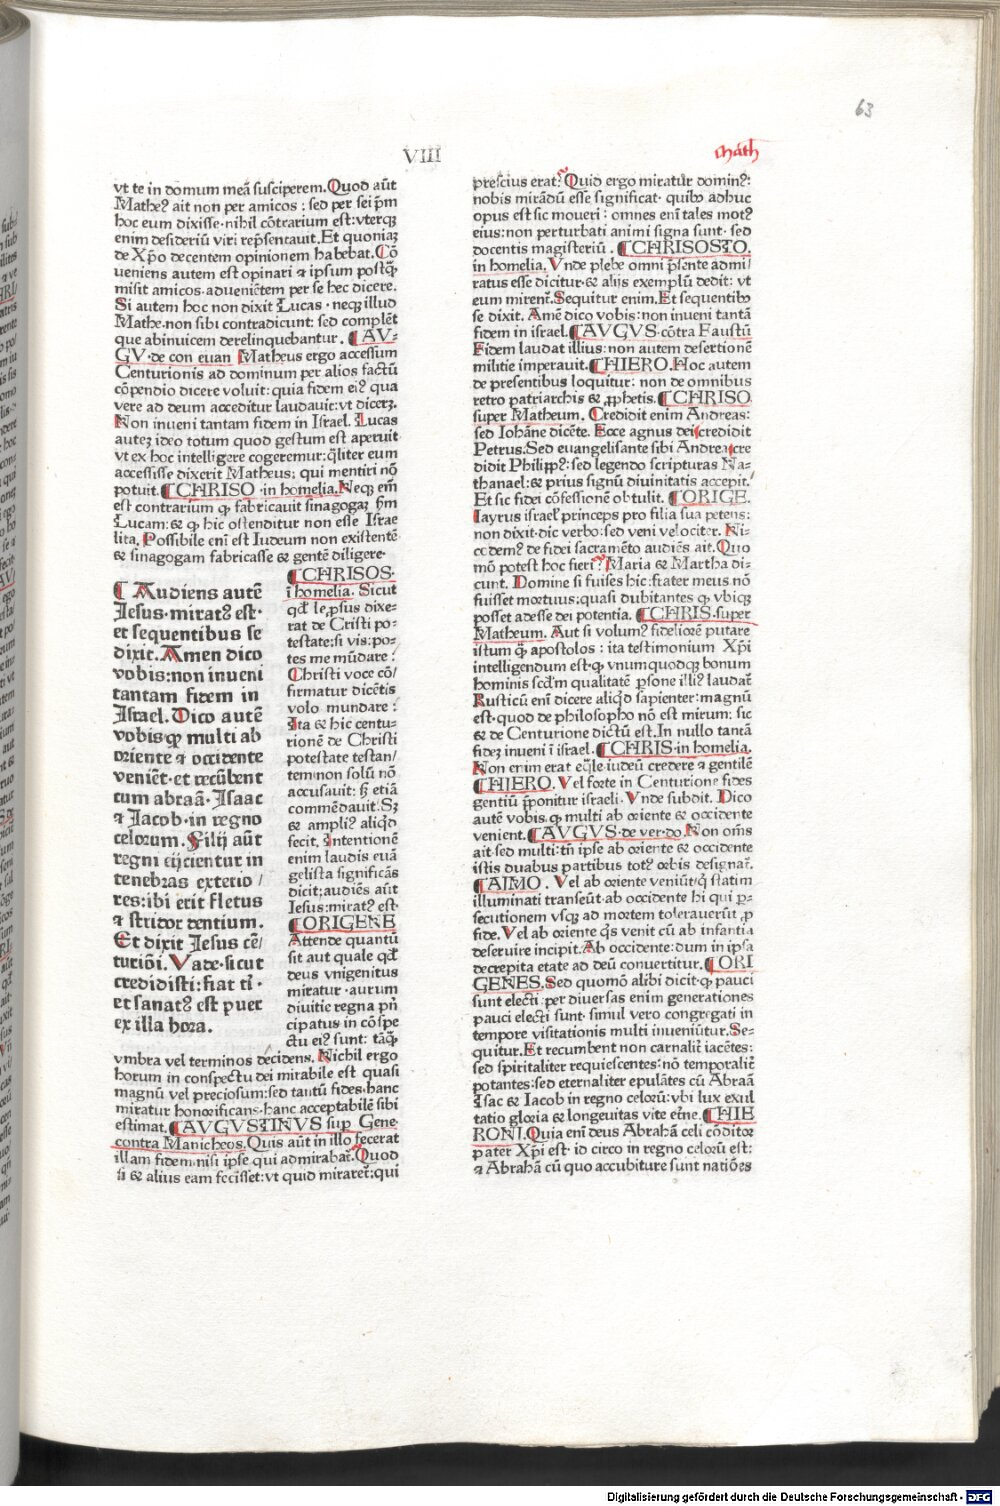 63
VIII
Math
vt te in domum meā susciperem. Quod aūt
Matheꝰ ait non per amicos : sed per sei p̄m
hoc eum dixisse·nihil cōtrarium est:vterqꝫ
enim desideriū viri rep̄sentauit. Et quoniaꝫ
de Xp̄o decentem opinionem habebat. Cō
ueniens autem est opinari ⁊ ipsum postꝙ̄
misit amicos·adueniētem per se hec dicere.
Si autem hoc non dixit Lucas · neqꝫ illud
Mathe·non sibi contradicunt: sed complēt
que abinuicem derelinquebantur. ¶ AV-
GV·de con euan Matheus ergo accessum
Centurionis ad dominum per alios factū
cōpendio dicere voluit: quia fidem eiꝰ qua
vere ad deum acceditur laudauit: vt dicerꝫ.
Non inueni tantam fidem in Israel. Lucas
auteꝫ ideo totum quod gestum est aperuit·
vt ex hoc intelligere cogeremur: qͥliter eum
accessisse dixerit Matheus; qui mentiri nō
potuit. ¶ CHRISO·in homelia. Neqꝫ em̄
est contrarium ꝙ fabricauit sinagogaꝫ s̄m
Lucam: & ꝙ hic ostenditur non esse Israe
lita. Possibile eni est Iudeum non existentē
& sinagogam fabricasse & gentē diligere·
¶ Audiens autē
Iesus·miratꝰ est·
et sequentibus se
dixit. Amen dico
vobis:non inueni
tantam fidem in
Israel. Dico autē
vobis·ꝙ multi ab
oriente ⁊ occidente
veniēt·et recūbent
cum abraā·Isaac
⁊ Iacob·in regno
celorum. Filij aūt
regni eijcientur in
tenebras exterio/
res: ibi erit fletus
⁊ stridor dentium.
Et dixit Iesus cē/
turiōi. Vade·sicut
credidisti: fiat ti·
et sanatꝰ est puer
ex illa hora.
¶ CHRISOS·
ī homelia. Sicut
qd̄ leprosus dixe-
rat de Cristi po-
testate: si vis: po/
tes me mūdare :
Christi voce cō/
firmatur dicētis
volo mundare :
Ita & hic centu-
rionē de Christi
potestate testan/
tem·non solū nō
accusauit: sꝫ etiā
commēdauit. Sꝫ
& ampliꝰ aliqd
fecit. Intentionē
enim laudis euā
gelista significās
dicit; audiēs aūt
Iesus: miratꝰ est·
¶ ORIGENE
Attende quantū
sit aut quale qd̄
deus vnigenitus
miratur·aurum
diuitie regna prī
cipatus in cōspe
ctu eiꝰ sunt: tāꝙ̄
vmbra vel terminos decidens. Nichil ergo
horum in conspectu dei mirabile est quasi
magnū vel preciosum: sed tantū fides·hanc
miratur honorificans·hanc acceptabilē sibi
estimat. ¶ AVGVSTINVS sup Gene
contra Manicheos. Quis aūt in illo fecerat
illam fidem·nisi ipse qui admirabat̄. Quod
si & alius eam fecisset: vt quid miraret̄: qui
prescius erat? Quid ergo miratur dominꝰ:
nobis mirādū esse significat· quibꝰ adhuc
opus est sic moueri : omnes eni tales motꝰ
eius: non perturbati animi signa sunt· sed
docentis magisteriū. ¶ CHRISOSTO.
in homelia. Vnde plebe omni p̄sente admi/
ratus esse dicitur·& alijs exemplū dedit: vt
eum mirent̄. Sequitur enim. Et sequentibꝰ
se dixit. Amē dico vobis: non inueni tantā
fidem in israel. ¶ AVGVS·cōtra Faustū
Fidem laudat illius: non autem desertionē
militie imperauit. ¶ HIERO. Hoc autem
de presentibus loquitur: non de omnibus
retro patriarchis & ꝓphetis. ¶ CHRISO
super Matheum. Credidit enim Andreas:
sed Iohāne dicēte. Ecce agnus dei credidit
Petrus. Sed euangelisante sibi Andrea cre
didit Philippꝰ: sed legendo scripturas Na-
thanael: & prius signū diuinitatis accepit.
Et sic fidei cōfessionē obtulit. ¶ ORIGE.
Iayrus israel' princeps pro filia sua petens:
non dixit·dic verbo: sed veni velociter. Ni-
codemꝰ de fidei sacramēto audiēs ait. Quo
mō potest hoc fieri? Maria & Martha di-
cunt. Domine si fuises hic: frater meus nō
fuisset mortuus: quasi dubitantes ꝙ vbiqꝫ
posset adesse dei potentia. ¶ CHRIS·super
Matheum. Aut si volumꝰ fideliorē putare
istum ꝙ̄ apostolos : ita testimonium Xp̄i
intelligendum est·ꝙ vnumquodqꝫ bonum
hominis scdm qualitatē ꝑsone illiꝰ laudat̄
Rusticū eni dicere aliqd sapienter: magnū
est·quod de philosopho nō est mirum: sic
& de Centurione dictū est. In nullo tantā
fideꝫ inueni ī israel. ¶ CHRIS·in homelia.
Non enim erat eqͥle iudeū credere ⁊ gentilē
¶ HIERO. Vel forte in Centurione fides
gentiū p̄ponitur israeli· Vnde subdit. Dico
autē vobis·ꝙ multi ab oriente & occidente
venient. ¶ AVGVS·de ver·do. Non om̄s
ait·sed multi: tn̄ ipse ab oriente & occidente
istis duabus partibus totꝰ orbis designat̄.
¶ AIMO. Vel ab oriente veniūt·qͥ statim
illuminati transeūt·ab occidente hi qui ꝑ-
secutionem vsqꝫ ad mortem tolerauerūt ꝓ
fide. Vel ab oriente qͥs venit cū ab infantia
deseruire incipit. Ab occidente: dum in ipsa
decrepita etate ad deū conuertitur. ¶ ORI
GENES. Sed quomō alibi dicit·ꝙ pauci
sunt electi: per diuersas enim generationes
pauci electi sunt· simul vero congregati in
tempore visitationis multi inueniūtur. Se-
quitur. Et recumbent non carnalit̄ iacētes:
sed spiritaliter requiescentes: nō temporalit̄
potantes: sed eternaliter epulātes cū Abraā
Isac & Iacob in regno celorū: vbi lux exul
tatio gloria & longeuitas vite et̄ne. ¶ HIE
RONI. Quia eni deus Abrahā celi cōditor
pater Xp̄i est· id circo in regno celorū est:
⁊ Abrahā cū quo accubiture sunt natiōes
Digitalisierung gefördert durch die Deutsche Forschungsgemeinschaft - DFG